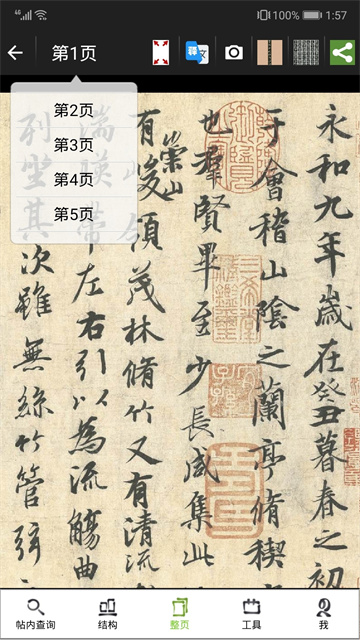 4G 100% 1:57
第1页
釋 文
第2页
第3页
第4页
第5页
永和九年歲在癸丑暮春之初
于會稽山陰之蘭亭脩稧
也羣賢畢至少長咸集此
有崇山峻領茂林脩竹又有清流
湍暎帶左右引以為流觴曲
列坐其次雖無絲竹管弦
帖内查询
结构
整页
工具
我